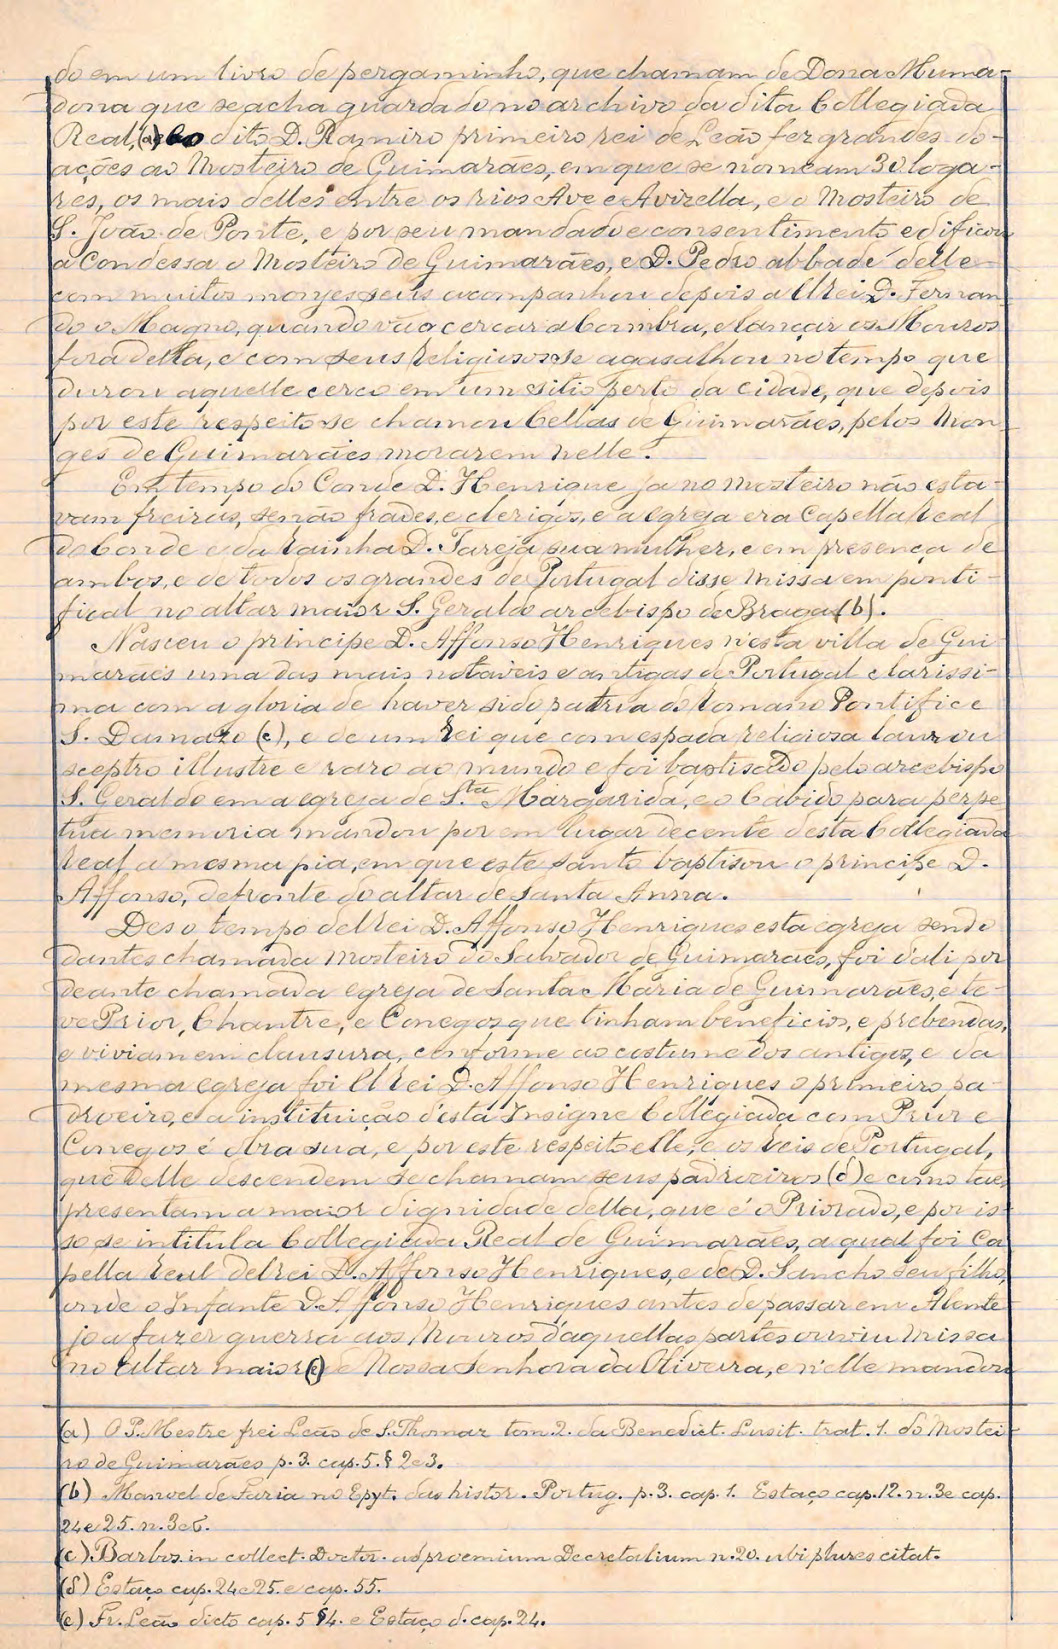 do em um livro de pergaminho, que chamam de Dona Muma-
dona que se acha guardado no archivo da dita Collegiada
Real, (a) e o dito D. Ramiro primeiro rei de Leão fez grandes do-
ações ao Mosteiro de Guimarães, em que se nomeam 30 loga-
res, os mais delles entre os rios Ave e Avizella, e o Mosteiro de
S. João de Ponte, e por seu mandado e consentimento edificou
a Condessa o Mosteiro de Guimarães, e D. Pedro abbade delle
com muitos monjes seus acompanhou depois a ElRei D. Fernan
do o Magno, quando vão cercar a Coimbra, e lançar os Mouros
fora della, e com seus religiosos se agasalhou no tempo que
durou aquelle cerco em um sitio perto da cidade, que depois
por este respeito se chamou Cellas de Guimarães, pelos Mon
ges de Guimarães morarem nelle.
Em tempo do Conde D. Henrique ja no mosteiro não esta-
vam freiras, senão frades, e clerigos, e a egreja era Capella real
do Conde e da rainha D. Tareja sua mulher, e em presença de
ambos, e de todos os grandes de Portugal disse missa em ponti-
fical no altar maior S. Geraldo arcebispo de Braga (b).
Nasceu o principe D. Affonso Henriques n'esta villa de Gui
marães uma das mais notaveis e antigas de Portugal clarissi-
ma com a gloria de haver sido patria do romano Pontifice
S. Damazo (c), e de um rei que com espada religiosa lavrou
sceptro illustre e raro ao mundo e foi baptisado pelo arcebispo
S. Geraldo em a egreja de S.ta Margarida, e o Cabido para perpe
tua memoria mandou por em lugar decente desta Collegiada
real a mesma pia, em que este santo baptisou o principe D.
Affonso, defronte do altar de santa Anna.
Des o tempo delRei D. Affonso Henriques esta egreja sendo
dantes chamada Mosteiro do Salvador de Guimarães, foi d'ali por
deante chamada egreja de Santa Maria de Guimarães, e te-
ve Prior, Chantre, e Conegos que tinham beneficios, e prebendas,
e viviam em clausura, conforme ao costume dos antigos, e da
mesma egreja foi ElRei D. Affonso Henriques o primeiro pa-
droeiro, e a instituição d'esta Insigne Collegiada com Prior e
Conegos é obra sua, e por este respeito elle, e os reis de Portugal,
que delle descendem se chamam seus padroeiros (d) e como taes
presentam a maior dignidade della, que é o Priorado, e por is-
so se intitula Collegiada Real de Guimarães, a qual foi Ca
pella real delrei D. Affonso Henriques, e de D. Sancho seu filho,
onde o Infante D. Affonso Henriques antes de passar em Alente
jo a fazer guerra aos Mouros d'aquellas partes ouviu missa
no altar maior (e) de Nossa Senhora da Oliveira, e n'elle mandou
(a) O P. Mestre frei Leão de S. Thomaz tom. 2. da Benedict. Lusit. trat. 1. do Mostei
ro de Guimarães p. 3. cap. 5. § 2 e 3.
(b) Manoel de Faria no Epyt. das histor. Portug. p. 3. cap. 1. Estaço cap. 12. n. 3 e cap.
24 e 25. n. 3 e 6.
(c) Barbos. in collect. Doctor. ad proemium Decretalium n. 20. ubi plures citat.
(d) Estaço cap. 24 e 25. e cap. 55.
(e) Fr. Leão dicto cap. 5 § 4. e Estaço d. cap. 24.